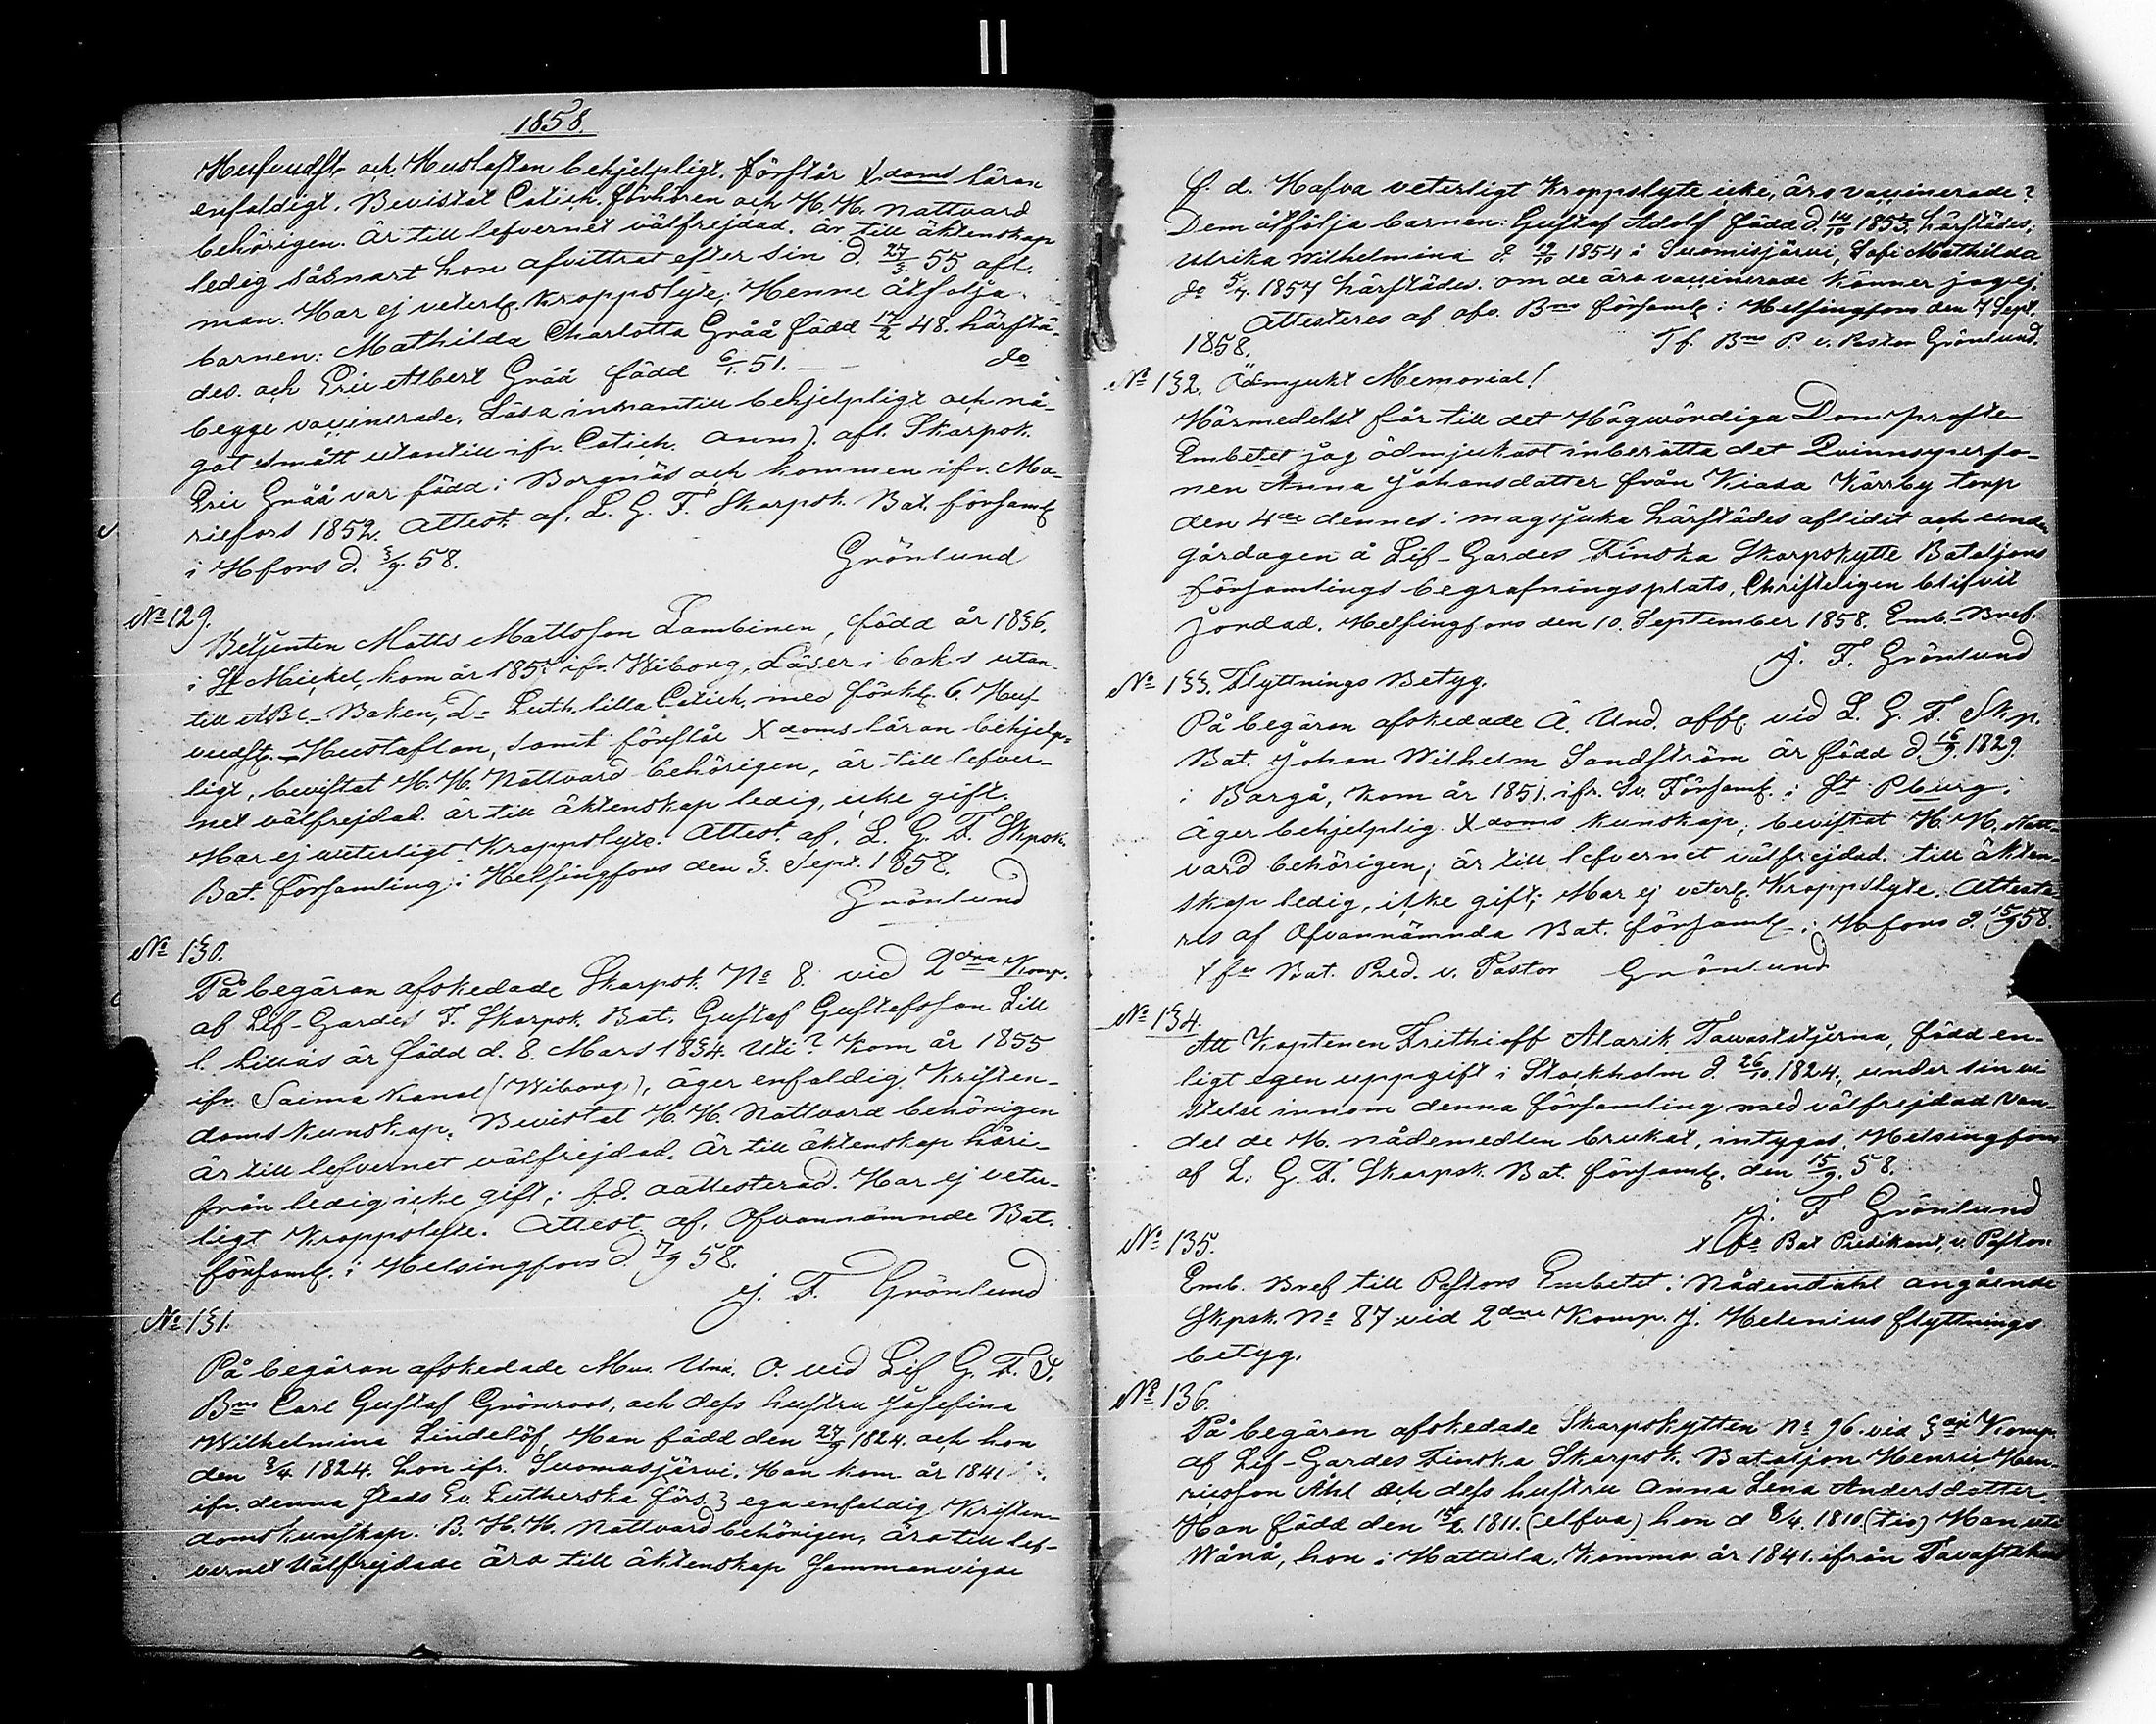 1858.
Hufvudst. och Hustaflan behjelpligt. förstår Xdoms läran
enfaldigt. Bevistat Catich. förhören och H. H. nattvard
behörigen. Är till lefvernet välfrejdad. är till äktenskap
ledig såsnart hon afvittrat efter sin d. 27/3 55 afl.
man. Har ej veterl. Kroppslyte; Henne åtfölja
barnen: Mathilda Charlotta Gråå född 17/2 48. härstä-
des. och Eric Albert Gråå född 6/1. 51. — — do
begge vaccinerade. Läsa innantill behjelpligt och nå-
got smått utantill ifr. Catich. anm). afl. Skarpsk.
Eric Gråå var född i Borgnäs och kommen ifr. Ma-
riefors 1852. Attest. af. L. G. F. Skarpsk. Bat. församl.
i Hfors d. 3/9. 58.
Grönlund
No 129.
Betjenten Matts Mattsson Lambinen, född år 1836.
i St Michel, kom år 1857 ifr. Wiborg, Läser i bok s utan-
till ABC-Boken, Dr Luth. lilla Catich. med förkl. 6. Huf-
vudst. Hustaflan, samt förstår Xdoms läran behjelp-
ligt, bevistat H. H. Nattvard behörigen, är till lefver-
net välfrejdad. är till äktenskap ledig, icke gift.
Har ej veterligt Kroppslyte. Attest. af, L. G. F. Skpsk.
Bat. församling i Helsingfors den 3. Sept. 1858.
Grönlund
No 130.
På begäran afskedade Skarpsk. No 8. vid 2dra Komp.
af Lif-Gardes F. Skarpsk. Bat. Gustaf Gustafsson Lill
l. Lilläs är född d. 8. Mars 1834. Uti? Kom år 1855
ifr. Saima Kanal (Wiborg), äger enfaldig Kristen-
doms kunskap. Bevistat H. H. Nattvard behörigen
är till lefvernet välfrejdad. Är till äktenskap häri-
från ledig icke gift; f.d. aattesterad. Har ej veter-
ligt Kroppslyte. Attest. af. Ofvannämnde Bat.
församl. i Helsingfors d. 7/9 58.
J. F. Grönlund
No 131.
På begäran afskedade Mus. Und. O. vid Lif G. F. S.
Bns Carl Gustaf Grönroos, och dess hustru Josefina
Wilhelmina Lindelöf, Han född den 27/9 1824. och hon
den 8/4 1824. hon ifr. Suomusjärvi. Han kom år 1841
ifr. denna stads Ev. Lutherska förs. ega enfaldig Kristen-
domskunskap. B. H. H. Nattvard behörigen, äro till lef-
vernet Välfrejdade äro till äktenskap sammanvigde
f. d. Hafva veterligt Kroppslyte icke, äro vaccinerade?
Dem åtfölja barnen: Gustaf Adolf född d. 14/10 1852 härstädes;
Ulrika Wilhelmina d. 19/10 1854 i Suomisjärvi, Sofi Mathilda
do 5/7. 1857 härstädes. om de äro vaccinerade känner jag ej.
Attesteres af ofv. Bns församl. i Helsingfors den 7 Sept.
1858.
Tf. Bns P. v. Pastor Grönlund.
No 132. Ödmjukt Memorial!
Härmedelst får till det Högwördiga Domprosts-
Embetet jag ödmjukast inberätta det Qvinnsperso-
nen Anna Johansdotter från Kiasa Kärrby torp
den 4de dennes i magsjuka härstädes aflidit och under
gårdagen å Lif-Gardes Finska Skarpskytte Bataljons
församlings begrafningsplats, Christeligen blifvit
Jordad. Helsingfors den 10. September 1858. Emb-Bref.
J. F. Grönlund
No 133. Flyttnings Betyg.
På begäran afskedade Ä. Und. offl. vid L. G. F. Skp.
Bat. Johan Wilhelm Sandström är född d. 16/9. 1829.
i Borgå, kom år 1851. ifr. Sv. Församl. i St. Pburg.
Äger behjelplig Xdoms kunskap; bevistat H. H. Natt-
vard behörigen; är till lefvernet välfrejdad. till äkten-
skap ledig, icke gift; Har ej veterl. Kroppslyte. Atteste-
res af Ofvannämnda Bat. församl. i Hfors d. 15/9 58.
t fr Bat. Pred. v. Pastor Grönlund
No 134.
Att Kaptenen Frithioff Alarik Tawaststjerna, född en-
ligt egen uppgift i Stockholm d. 26/10. 1824., under sin vi-
stelse innom denna församling med välfrejdad van-
del de H. nådemedlen brukat, intygas. Helsingfors
af L. G. F. Skarpsk. Bat. församl. den 15/9. 58.
J. F Grönlund
t fr Bat Predikant, v. Pastor.
No 135.
Emb. Bref till Pastors Embetet i Nådendahl angående
Skpsk. No 87 vid 2dra Komp. J. Helenius flyttnings
betyg.
No 136.
På begäran afskedade Skarpskytten No 96. vid 3dje Komp.
af Lif-Gardes Finska Skarpsk. Bataljon Henric Hen-
ricsson Åhl och dess hustru Anna Lena Andersdotter.
Han född den 15/2. 1811. (elfva) hon d 8/4. 1810. (tio) Han uti
Wånå, hon i Hattula, Komma år 1841. ifrån Tavastehus